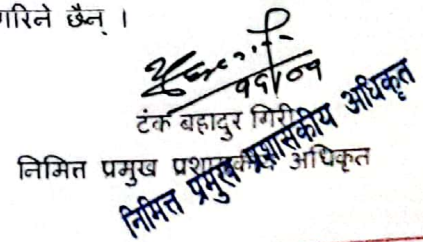 गरिने छैन् ।
१६/०१
टंक बहादुर गिरी
निमित्त प्रमुख प्रशासकीय अधिकृत
निमित्त प्रमुख प्रशासकीय अधिकृत